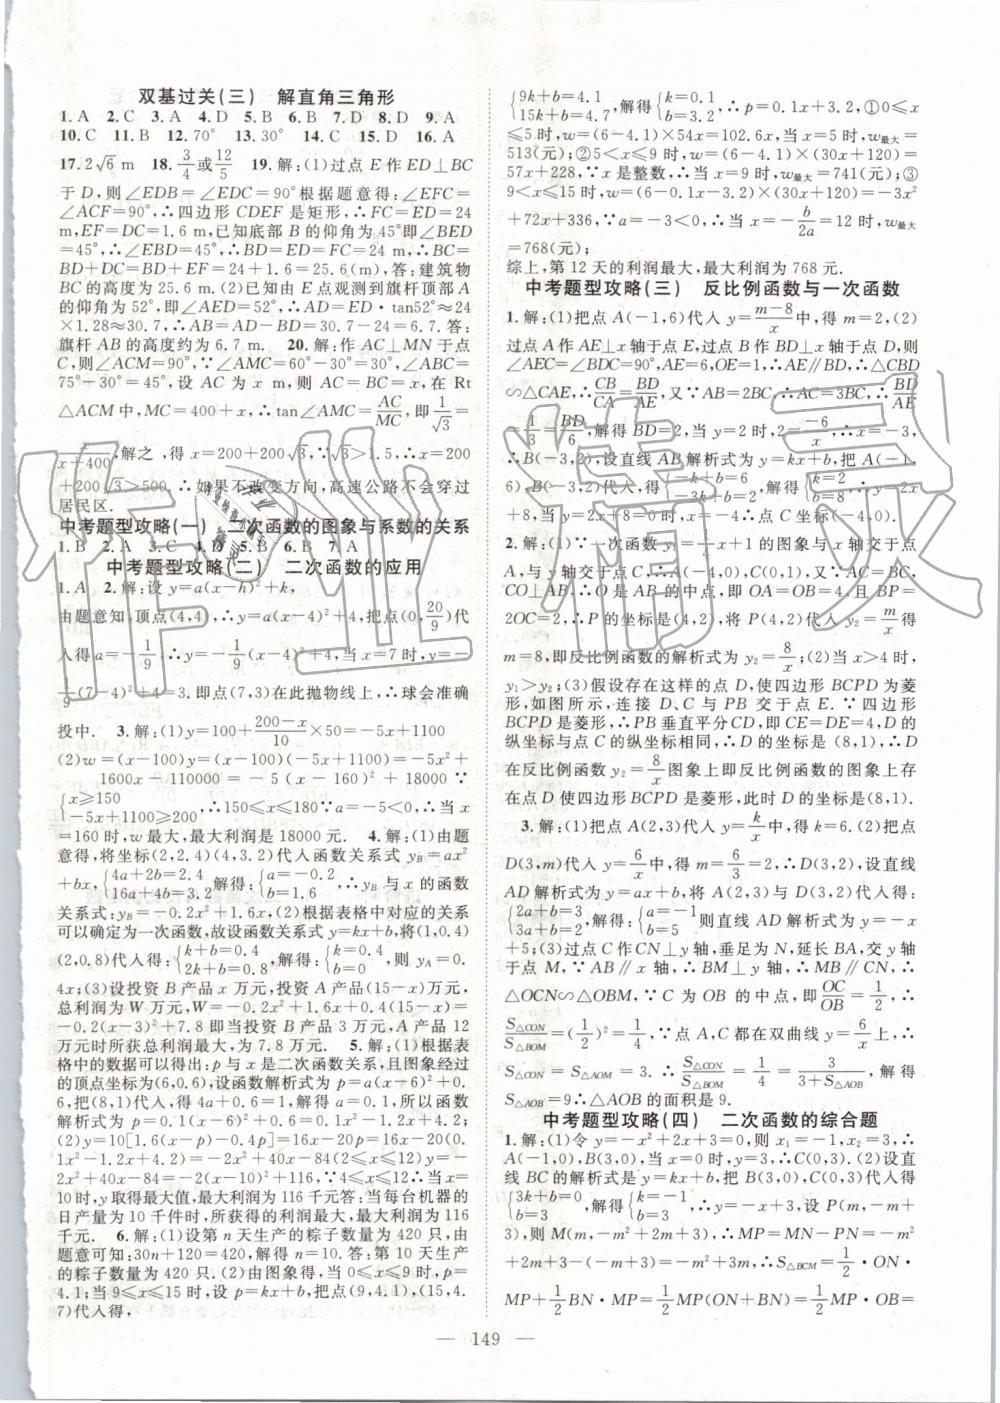 双基过关(三)　解直角三角形
1. A　2. C　3. A　4. D　5. B　6. B　7. D　8. D　9. A
10. C　11. B　12. 70°　13. 30°　14. C　15. D　16. A
17. 2√6 m　18. 3/4或12/5　19. 解:(1)过点 E 作 ED⊥BC
于 D,则∠EDB=∠EDC=90°根据题意得:∠EFC=
∠ACF=90°,∴四边形 CDEF 是矩形,∴FC=ED=24
m,EF=DC=1.6 m,已知底部 B 的仰角为 45°即∠BED=
45°,∴∠EBD=45°,∴BD=ED=FC=24 m,∴BC=
BD+DC=BD+EF=24+1.6=25.6(m),答:建筑物
BC 的高度为 25.6(m).(2)已知由 E 点观测到旗杆顶部 A
的仰角为 52°,即∠AED=52°,∴AD=ED·tan52°≈24
×1.28≈30.7,∴AB=AD-BD=30.7-24=6.7.答:
旗杆 AB 的高度约为 6.7 m.　20. 解:作 AC⊥MN 于点
C,则∠ACM=90°,∵∠AMC=60°-30°=30°,∠ABC=
75°-30°=45°,设 AC 为 x m,则 AC=BC=x,在 Rt
△ACM 中,MC=400+x,∴tan∠AMC=AC/MC,即1/√3=
x/(x+400),解之,得 x=200+200√3,∵√3>1.5,∴x=200
+200√3>500.∴如果不改变方向,高速公路不会穿过
居民区.
中考题型攻略(一)　二次函数的图象与系数的关系
1. B　2. A　3. C　4. D　5. B　6. B　7. A
中考题型攻略(二)　二次函数的应用
1. A　2. 解:设 y=a(x-h)²+k,
由题意知,顶点(4,4),∴y=a(x-4)²+4,把点(0,20/9)代
入得 a=-1/9.∴y=-1/9(x-4)²+4,当 x=7 时,y=-
1/9(7-4)²+4=3.即点(7,3)在此抛物线上,∴球会准确
投中.　3. 解:(1)y=100+(200-x)/10×50=-5x+1100
(2)w=(x-100)y=(x-100)(-5x+1100)=-5x²+
1600x-110000=-5(x-160)²+18000∵
{x≥150 -5x+1100≥200,∴150≤x≤180∵a=-5<0,∴当 x
=160 时,w 最大,最大利润是 18000 元.　4. 解:(1)由题
意得,将坐标(2,2.4)(4,3.2)代入函数关系式 yB=ax²
+bx,{4a+2b=2.4 16a+4b=3.2解得:{a=-0.2 b=1.6∴yB 与 x 的函数
关系式:yB=-0.2x²+1.6x(2)根据表格中对应的关系
可以确定为一次函数,故设函数关系式 y=kx+b,将(1,0.4)
(2,0.8)代入得:{k+b=0.4 2k+b=0.8解得:{k=0.4 b=0,则 yA=0.
4x;(3)设投资 B 产品 x 万元,投资 A 产品(15-x)万元,
总利润为 W 万元,W=-0.2x²+1.6x+0.4(15-x)=-
0.2(x-3)²+7.8 即当投资 B 产品 3 万元,A 产品 12
万元时所获总利润最大,为 7.8 万元.　5. 解:(1)根据表
格中的数据可以得出:p 与 x 是二次函数关系,且图象经过
的顶点坐标为(6,0.6),设函数解析式为 p=a(x-6)²+0.
6,把(8,1)代入,得 4a+0.6=1,解得 a=0.1,所以函数
解析式为 p=0.1(x-6)²+0.6=0.1x²-1.2x+4.2;
(2)y=10[1.6x-(0.1x²-1.2x+4.2)-0.4p]=10(-
0.1x²-1.2x+4.2)=-2x²+40x-84=-2(x²-20x+
100-100)-84=-2(x-10)²+116(4≤x≤12).∴当 x=
10 时,y 取得最大值,最大利润为 116 千元答:当每台机器的
日产量为 10 千件时,所获得的利润最大,最大利润为 116
千元.　6. 解:(1)设第 n 天生产的粽子数量为 420 只,由
题意可知:30n+120=420,解得 n=10.答:第 10 天生产
的粽子数量为 420 只.(2)由图象得,当 0≤x≤9 时,p=
4.1;当 9≤x≤15 时,设 p=kx+b,把点(9,4.1),(15,4.
7)代入得,
{9k+b=4.1 15k+b=4.7,解得{k=0.1 b=3.2,∴p=0.1x+3.2,①0≤x
≤5 时,w=(6-4.1)×54x=102.6x,当 x=5 时,w最大=
513(元);②5<x≤9 时,w=(6-4.1)×(30x+120)=
57x+228,∵x 是整数,∴当 x=9 时,w最大=741(元);③
9<x≤15 时,w=(6-0.1x-3.2)×(30x+120)=-3x²
+72x+336,∵a=-3<0,∴当 x=-b/2a=12 时,w最大
=768(元);
综上,第 12 天的利润最大,最大利润为 768 元.
中考题型攻略(三)　反比例函数与一次函数
1. 解:(1)把点 A(-1,6)代入 y=(m-8)/x中,得 m=2,(2)
过点 A 作 AE⊥x 轴于点 E,过点 B 作 BD⊥x 轴于点 D,则
∠AEC=∠BDC=90°,AE=6,OE=1,∴AE∥BD,∴△CBD
∽△CAE,∴CB/CA=BD/AE,又∵AB=2BC,∴AC=3BC,∴BD/AE
=1/3=BD/6,解得 BD=2,当 y=2 时,2=-6/x,∴x=-3,
∴B(-3,2),设直线 AB 解析式为 y=kx+b,把 A(-1,
6),B(-3,2)代入,得 k=2,b=8.∴直线解析式为 y=2x
+8,当 y=0 时,x=-4,∴点 C 坐标(-4,0).
2. 解:(1)∵一次函数 y₁=1/4x+1 的图象与 x 轴交于点 A,
与 y 轴交于点 C,∴A(-4,0),C(0,1),又∵AC=BC,
CO⊥AB,∴O 是 AB 的中点,即 OA=OB=4,且 BP=
2OC=2,∴P 的坐标是(4,2),将 P(4,2)代入 y₂=m/x得
m=8,即反比例函数的解析式为 y₂=8/x;(2)当 x>4 时,
y₁>y₂;(3)假设存在这样的点 D,使四边形 BCPD 为菱
形,如图所示,连接 D、C 与 PB 交于点 E.∵四边形
BCPD 为菱形,∴PB 垂直平分 CD,即 CE=DE=4,D 的
纵坐标与点 C 的纵坐标相同.∴D 的坐标为 (8,1),∴D
在反比例函数 y₂=8/x图象上即反比例函数的图象上存
在点 D 使四边形 BCPD 是菱形,此时 D 的坐标是(8,1).
3. 解:(1)把点 A(2,3)代入 y=k/x得 k=6.(2)把点
D(3,m)代入 y=6/x中,得 m=6/3=2,∴D(3,2),设直线
AD 解析式为 y=ax+b,将 A(2,3)与 D(3,2)代入得:
{2a+b=3 3a+b=2,解得:{a=-1 b=5则直线 AD 解析式为 y=-x
+5;(3)过点 C 作 CN⊥y 轴,垂足为 N,延长 BA,交 y 轴
于点 M,∵AB∥x 轴,∴BM⊥y 轴,∴MB∥CN,∴
△OCN∽△OBM,∵C 为 OB 的中点,即OC/OB=1/2,∴
S△CON/S△BOM=(1/2)²=1/4∵点 A,C 都在双曲线 y=6/x上,∴
S△CON=S△AOM=3.∴S△CON/S△BOM=1/4=3/(3+S△AOB),解得
S△AOB=9∴△AOB 的面积是 9.
中考题型攻略(四)　二次函数的综合题
1. 解:(1)令 y=-x²+2x+3=0,则 x₁=-1,x₂=3,∴
A(-1,0),B(3,0),当 x=0 时,y=3,∴C(0,3).(2)设直
线 BC 的解析式是 y=kx+b,把 B(3,0),C(0,3)代入得
{3k+b=0 b=3,解得{k=-1 b=3∴y=-x+3,设 P(m,-m+
3),则 M(m,-m²+2m+3),∴MP=MN-PN=-m²+
2m+3-(-m+3)=-m²+3m,∴S△BCM=1/2ON·
MP+1/2BN·MP=1/2MP(ON+BN)=1/2MP·OB=
— 149 —